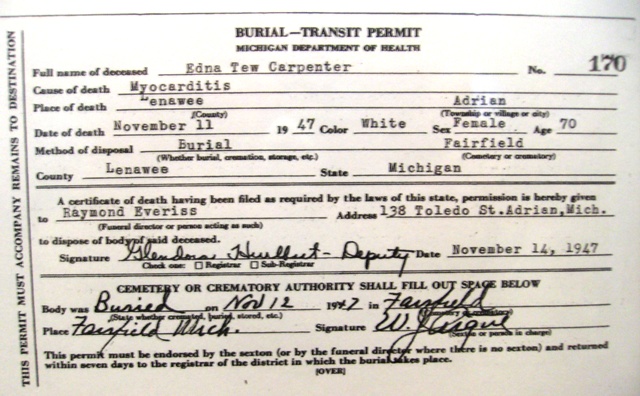 BURIAL—TRANSIT PERMIT
MICHIGAN DEPARTMENT OF HEALTH
Full name of deceased Edna Tew Carpenter No. 170
Cause of death Myocarditis
Place of death Lenawee Adrian
(County) (Township or village or city)
Date of death November 11 1947 Color White Sex Female Age 70
Method of disposal Burial Fairfield
(Whether burial, cremation, storage, etc.) (Cemetery or crematory)
County Lenawee State Michigan
A certificate of death having been filed as required by the laws of this state, permission is hereby given
to Raymond Everiss Address 138 Toledo St. Adrian, Mich.
(Funeral director or person acting as such)
to dispose of body of said deceased.
Signature Glendora Hurlbut - Deputy Date November 14, 1947
Check one: ☐ Registrar ☐ Sub-Registrar
CEMETERY OR CREMATORY AUTHORITY SHALL FILL OUT SPACE BELOW
Body was Buried on Nov 12 1947 in Fairfield
(State whether cremated, buried, stored, etc.) (Cemetery or crematory)
Place Fairfield Mich. Signature W. J.
(Sexton or person in charge)
This permit must be endorsed by the sexton (or by the funeral director where there is no sexton) and returned
within seven days to the registrar of the district in which the burial takes place.
[OVER]
THIS PERMIT MUST ACCOMPANY REMAINS TO DESTINATION